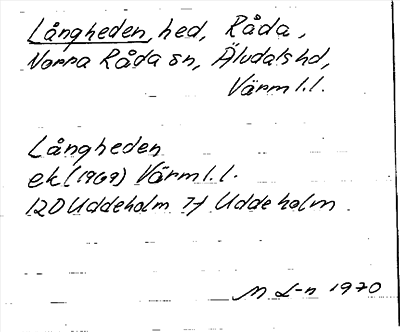 Långheden, hed, Råda,
Norra Råda sn, Älvdals hd,
Värml.l.
Långheden
ek (1969) Värml.l.
12D Uddeholm 7f Uddeholm
M L-n 1970